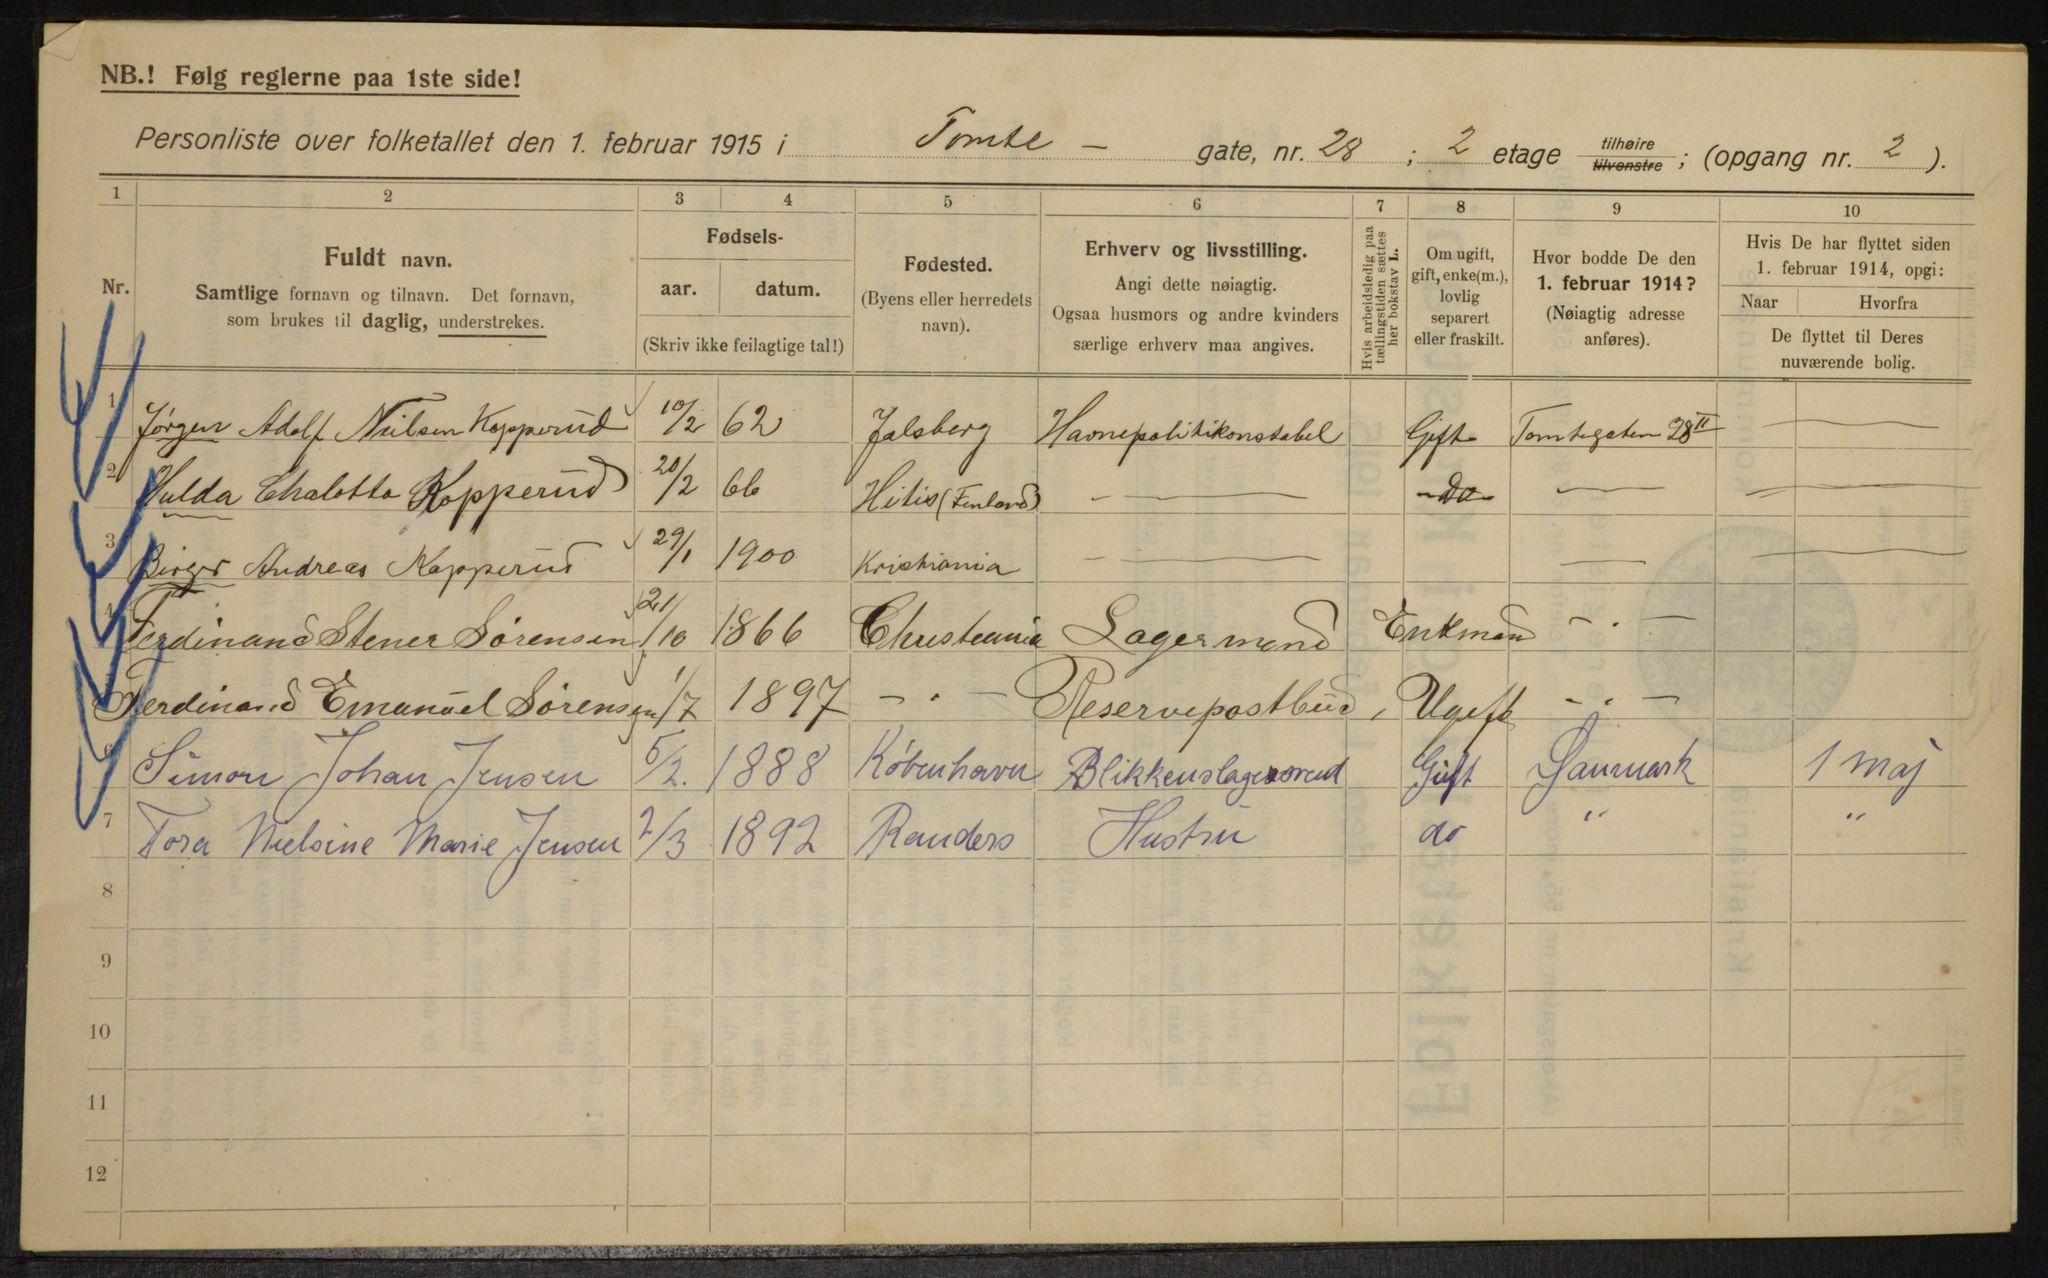 NB.! Følg reglerne paa 1ste side!
Personliste over folketallet den 1. februar 1915 i Tomte - gate, nr. 28 ; 2 etage tilhøire tilvenstre ; (opgang nr. 2 ).
1 2 3 4 5 6 7 8 9 10
Nr.
Fuldt navn.
Samtlige fornavn og tilnavn. Det fornavn,
som brukes til daglig, understrekes.
Fødsels-
aar. datum.
(Skriv ikke feilagtige tal!)
Fødested.
(Byens eller herredets
navn).
Erhverv og livsstilling.
Angi dette nøiagtig.
Ogsaa husmors og andre kvinders
særlige erhverv maa angives.
Hvis arbeidsledig paa
tællingstiden sættes
her bokstav L.
Om ugift,
gift, enke(m.),
lovlig
separert
eller fraskilt.
Hvor bodde De den
1. februar 1914?
(Nøiagtig adresse
anføres).
Hvis De har flyttet siden
1. februar 1914, opgi:
Naar Hvorfra
De flyttet til Deres
nuværende bolig.
1 Jørgen Adolf Nielsen Kopperud 10/2 62 Jalsberg Havnepolitikonstabel Gift Tomtegaten 28 II —
2 Hulda Chalotta Kopperud 20/2 66 Hitis (Finland) - — - Do - — —
3 Birger Andreas Kopperud 29/1 1900 Kristiania - — — —
4 Ferdinand Stener Sørensen 21/10 1866 Christeania Lagermand Enkmand - . -
Ferdinand Emanuel Sørensen 1/7 1897 - . - Reservepostbud, Ugift - . -
6 Simon Johan Jensen 5/2. 1888 København Blikkenslagersvend Gift Danmark 1 Maj
7 Tora Nielsine Marie Jensen 2/3 1892 Randers Hustru do " "
8
9
10
11
12